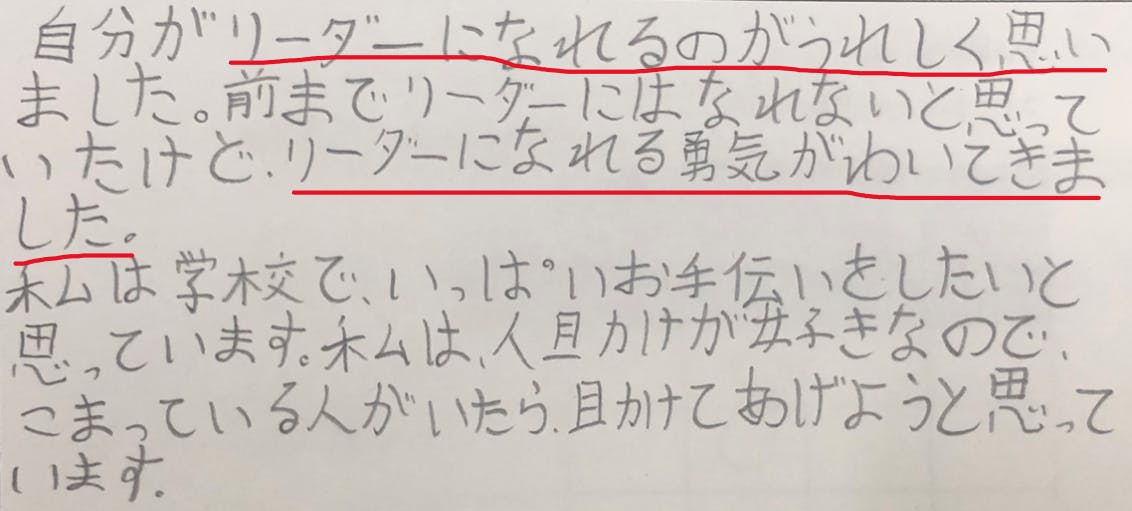 自分がリーダーになれるのがうれしく思い
ました。前までリーダーにはなれないと思って
いたけど、リーダーになれる勇気がわいてきま
した。
私は学校で、いっぱいお手伝いをしたいと
思っています。私は、人助けが好きなので、
こまっている人がいたら、助けてあげようと思って
います。